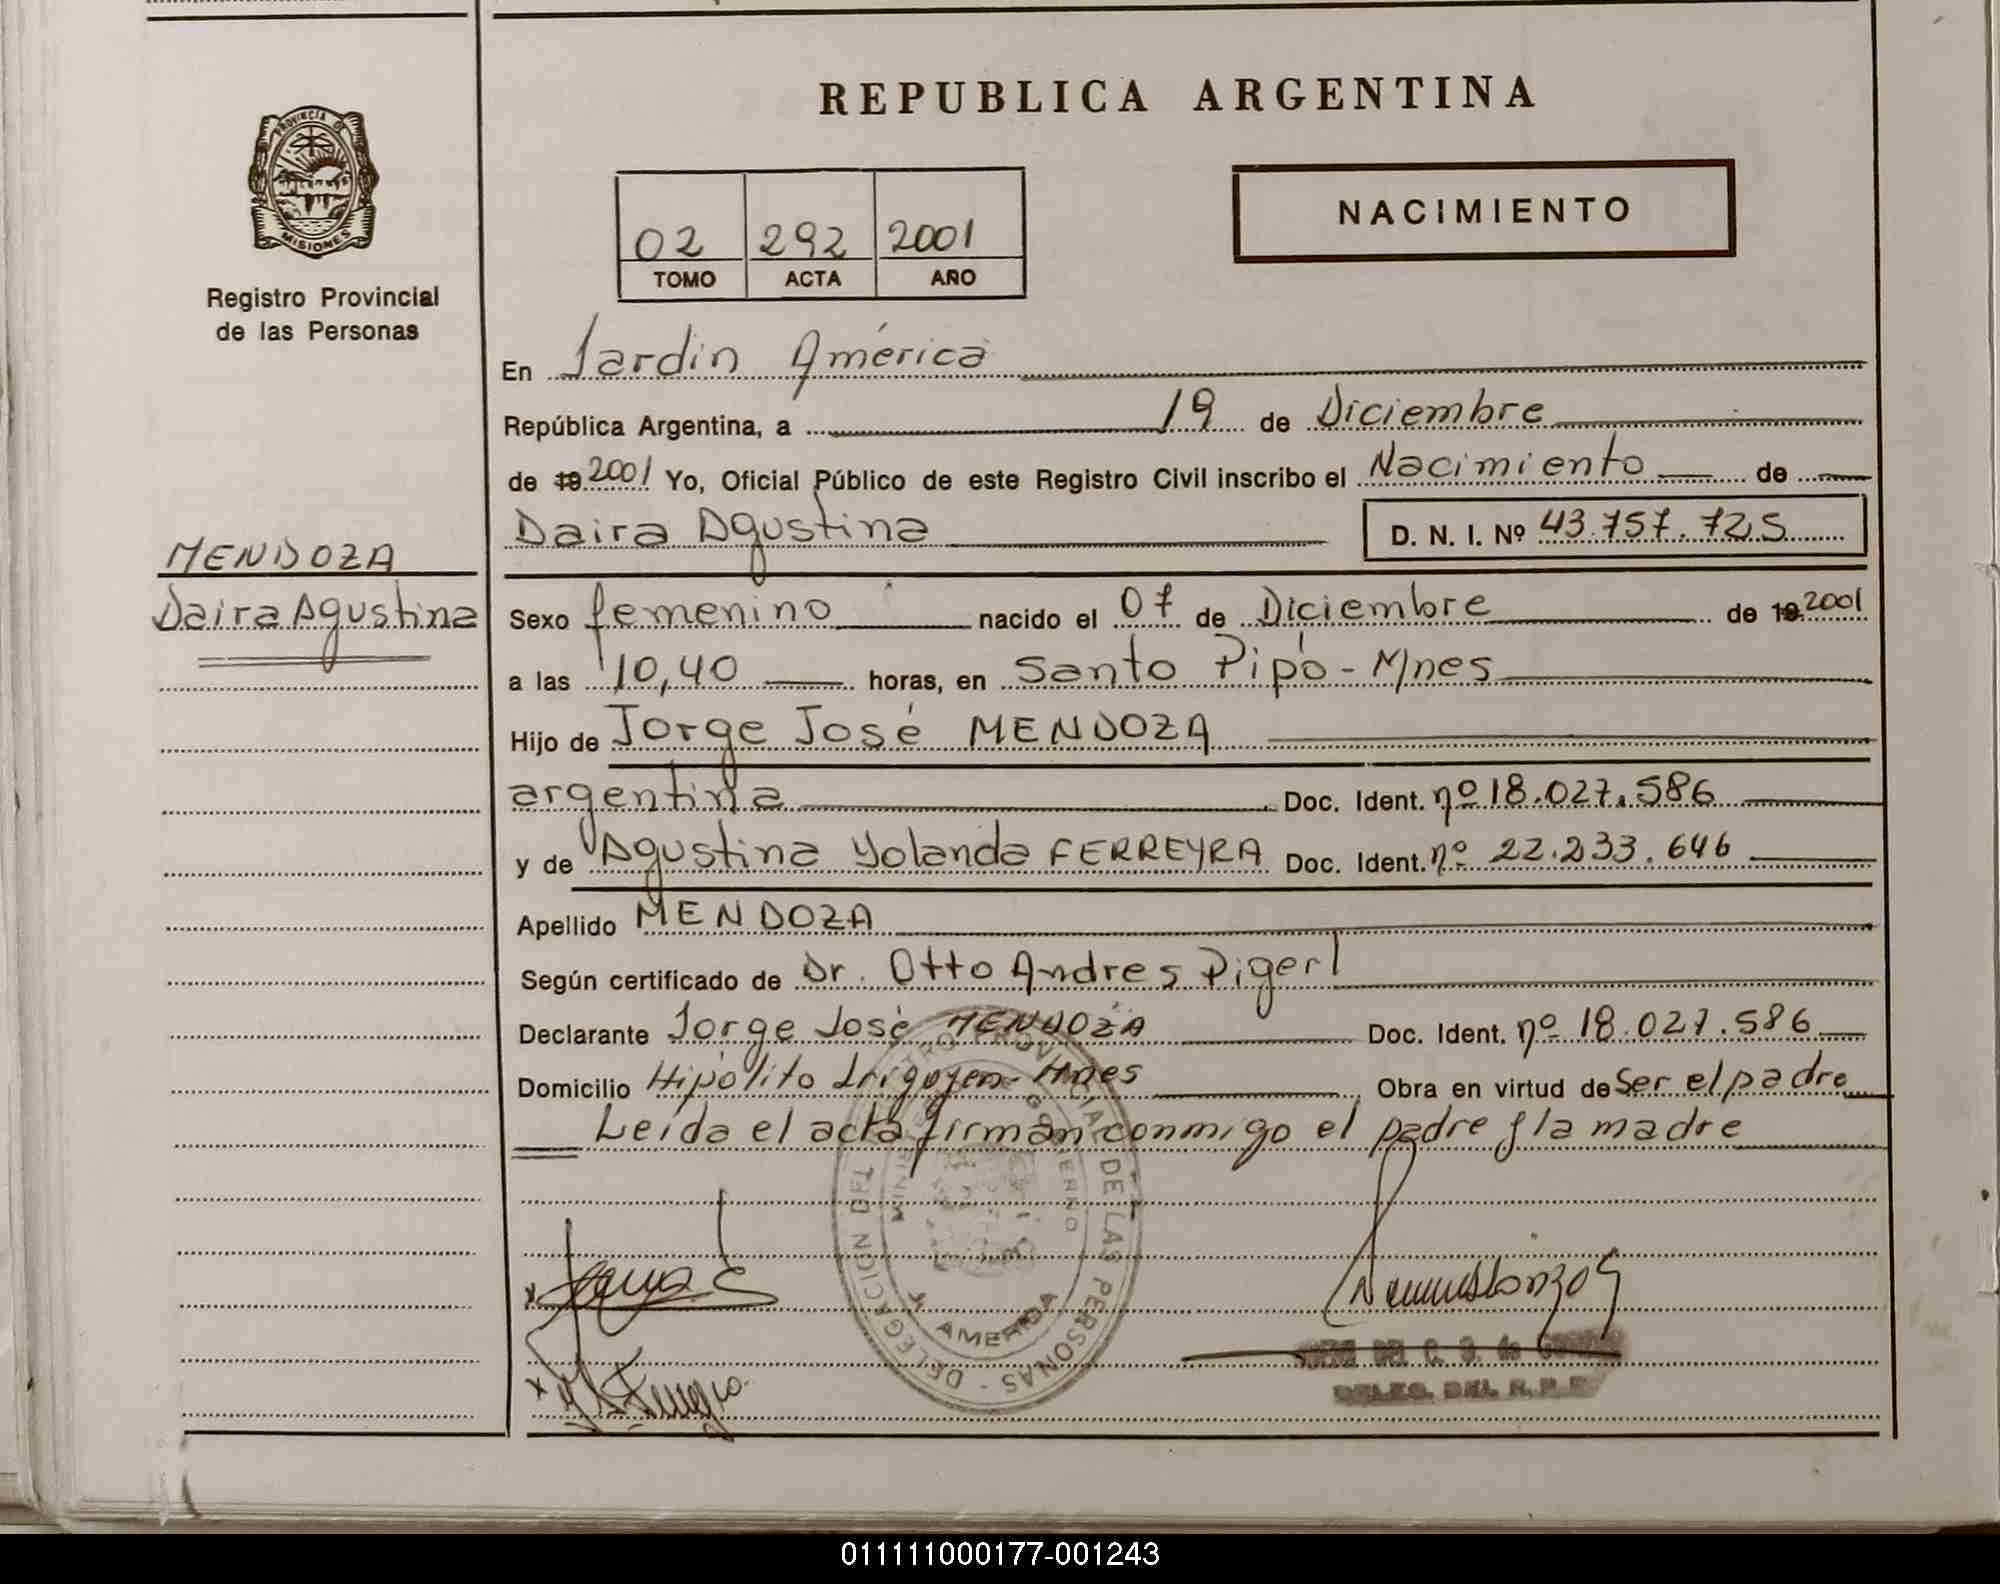 REPUBLICA ARGENTINA
PROVINCIA DE
MISIONES
Registro Provincial
de las Personas
NACIMIENTO
02 292 2001
TOMO ACTA AÑO
En Jardin América
República Argentina, a 19 de Diciembre
de 19 2001 Yo, Oficial Público de este Registro Civil inscribo el Nacimiento de
Daira Agustina D. N. I. Nº 43.757.725
MENDOZA
Daira Agustina
Sexo femenino nacido el 07 de Diciembre de 19 2001
a las 10,40 horas, en Santo Pipó - Mnes
Hijo de Jorge José MENDOZA
argentina Doc. Ident. nº 18.027.586
y de Agustina Yolanda FERREYRA Doc. Ident. nº 22.233.646
Apellido MENDOZA
Según certificado de Dr. Otto Andres Pigerl
Declarante Jorge José MENDOZA Doc. Ident. nº 18.027.586
Domicilio Hipólito Irigoyen - Mnes Obra en virtud de Ser el padre
Leída el acta firman conmigo el padre y la madre
REGISTRO PROVINCIAL DE LAS PERSONAS - DELEGACION DEL
MINISTERIO GOBIERNO
AMERICA
DELEG. DEL R. P. P.
011111000177-001243